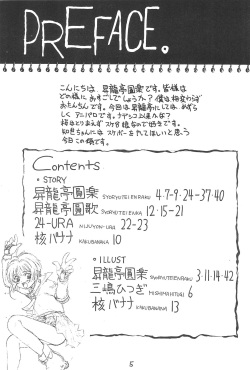 PREFACE.
こんにちは、昇龍亭圓楽です。皆様は
どの様におすごしでしょうか? 僕は相変わらず
おたんちんです。今回は昇龍亭にしては、めずら
しくアニパロです。
桜は
知世ちゃんには スケボーをしてほしいと思う
今日この頃です。
Contents
• STORY
昇龍亭圓楽 SYORYUTEIENRAKU 4・7・9・24・37・40
昇龍亭圓歌 SYORYUTEIENKA 12・15・21
24-URA NIJUYON-URA 22-23
核バナナ KAKUBANANA 10
• ILLUST
昇龍亭圓楽 SYORYUTEIENRAKU 3・11・14・42
三嶋ひつぎ MISHIMAHITUGI 6
核バナナ KAKUBANANA 13
5